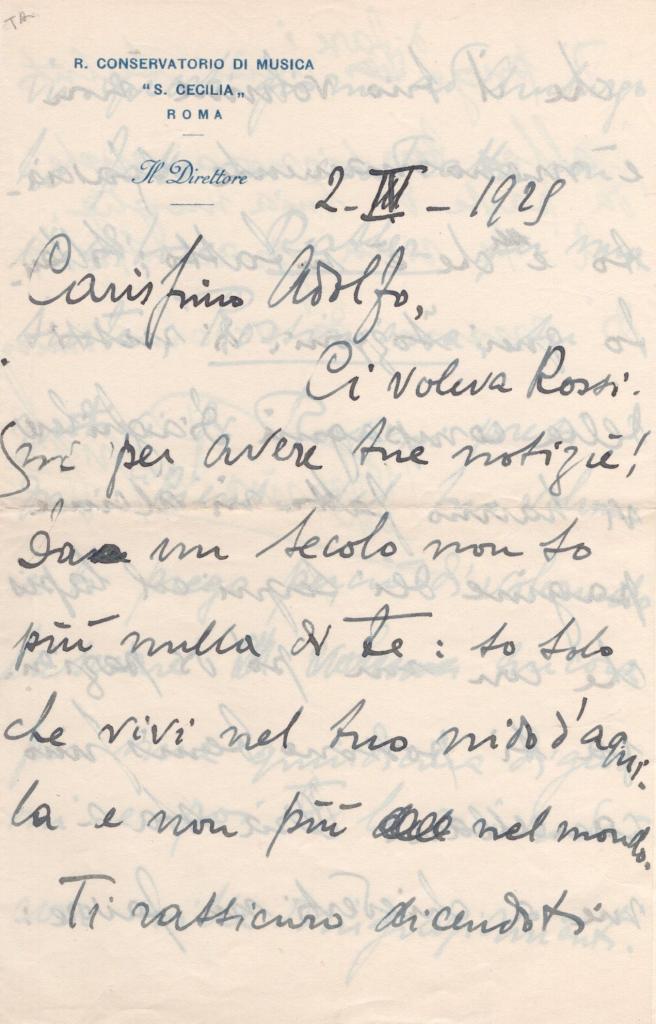 TA
R. CONSERVATORIO DI MUSICA
"S. CECILIA„
ROMA
Il Direttore
2-III-1925
Carissimo Adolfo,
Ci voleva Rossi.
ni per avere tue notizie!
Da un secolo non so
più nulla di te: so solo
che vivi nel tuo nido d'aqui.
la e non più nel mondo.
Ti rassicuro dicendoti